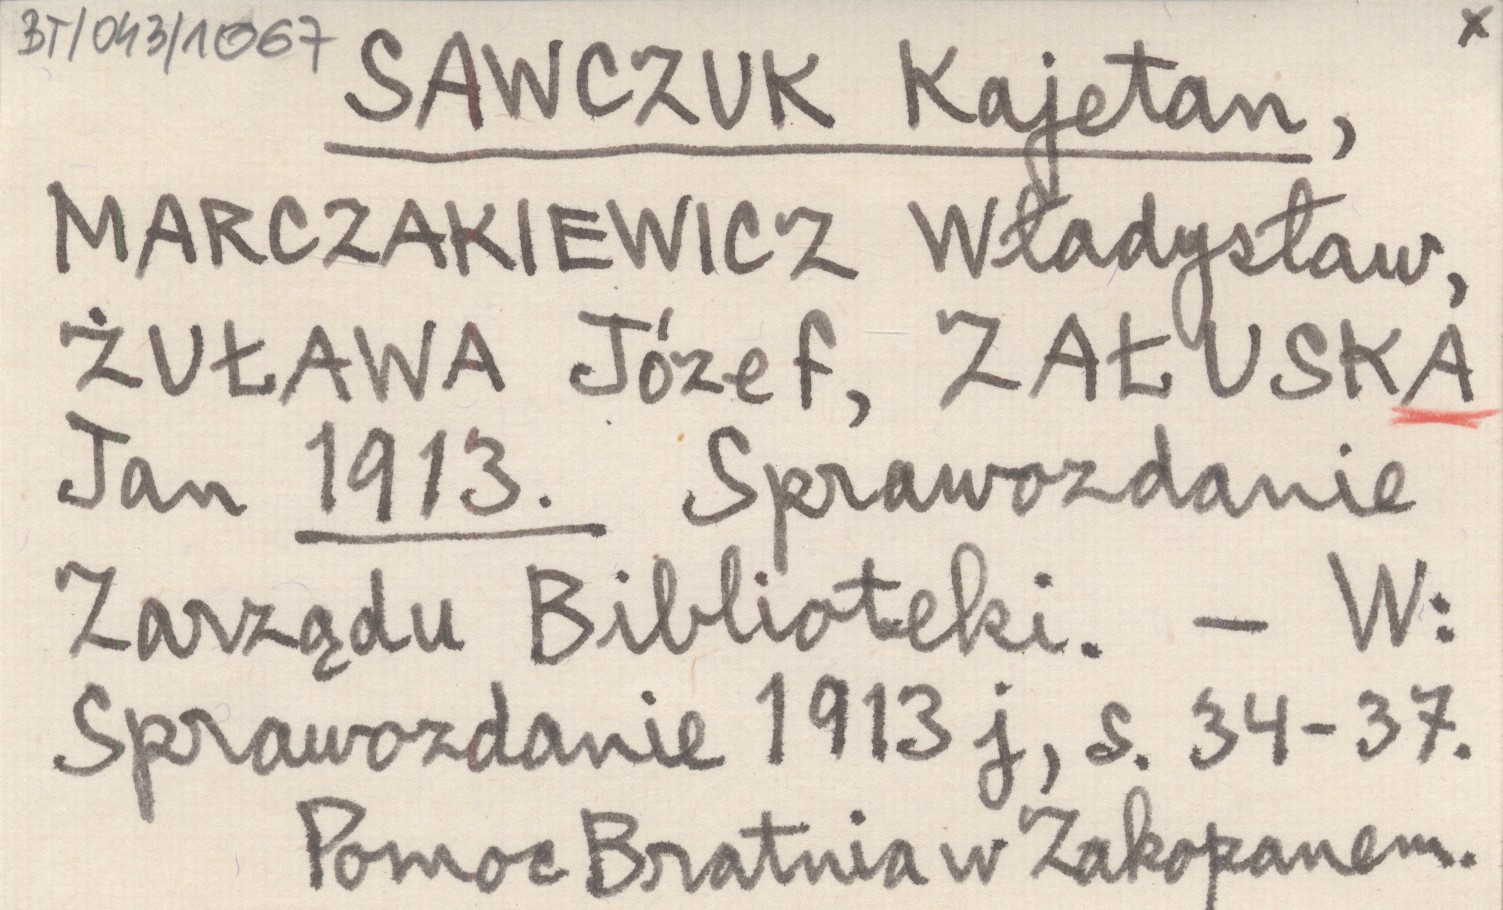 BT/043/1067
x
SAWCZUK Kajetan,
MARCZAKIEWICZ Władysław,
ŻUŁAWA Józef, ZAŁUSKA
Jan 1913. Sprawozdanie
Zarządu Biblioteki. – W:
Sprawozdanie 1913 j, s. 34-37.
Pomoc Bratnia w Zakopanem.